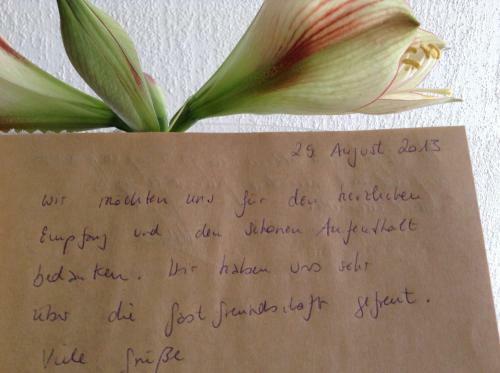 29 August 2013
Wir möchten uns für den herzlichen
Empfang und den schönen Aufenthalt
bedanken. Wir haben uns sehr
über die Gastfreundschaft gefreut.
Viele Grüße